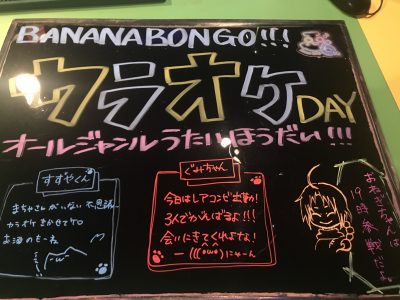 BANANABONGO!!!
カラオケDAY
オールジャンルうたいほうだい!!!
すずやくん
まちゃさんがいない不思議…
カラオケきかせてケロ
お酒のもーね
ぐみちゃん
今日はレアコンビ出勤!
3人でがんばるよ!!!
会いにきてくれよな!
ー(((o'ω'o)にゃーん
おやぎちゃんは
19時参戦だよ